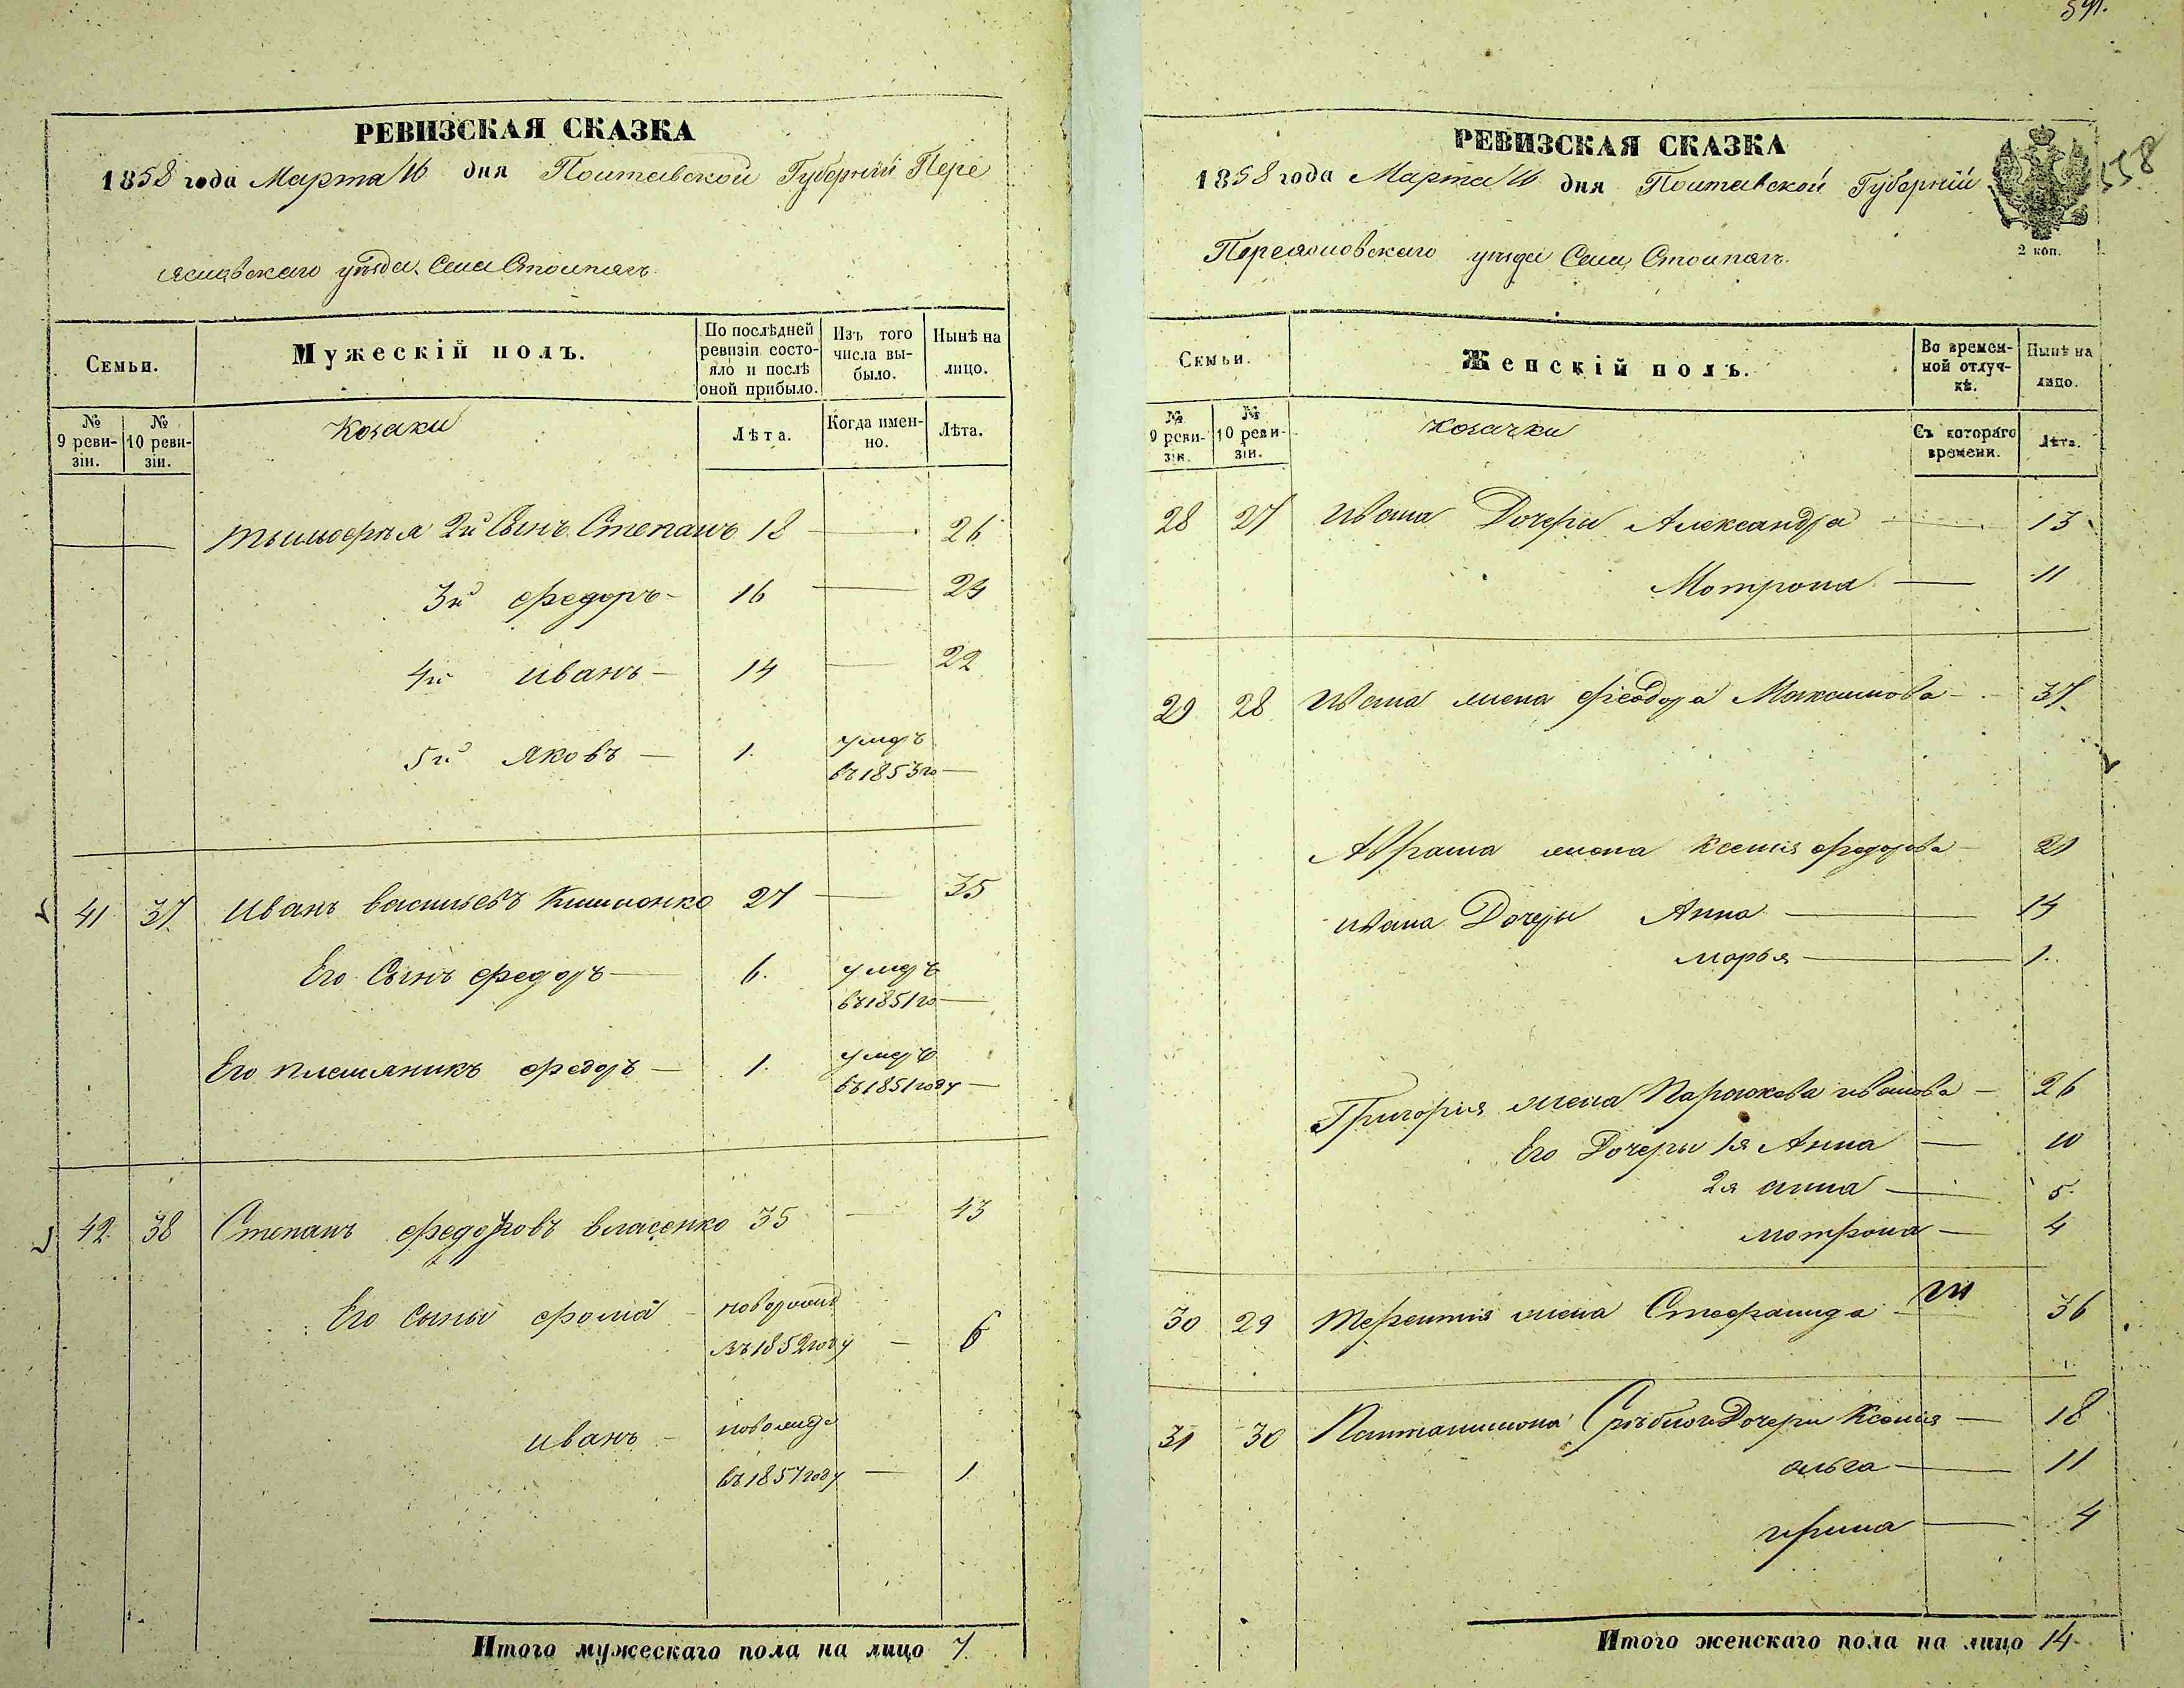 РЕВИЗСКАЯ СКАЗКА
1858 года Марта 16 дня Полтавской Губерніи Пере
яславскаго уѣзда Села Столпягъ
Семьи.
Мужескій полъ.
По послѣдней ревизіи состояло и послѣ оной прибыло.
Изъ того числа выбыло.
Нынѣ на лицо.
№ 9 ревизіи.
№ 10 ревизіи.
Козаки
Лѣта.
Когда именно.
Лѣта.
2й Сынъ Степанъ 18 — 26
3й Федоръ — 16 — 24
4й Иванъ — 14 — 22
5й Яковъ — 1. умеръ
въ 1853 го —
41 37 Иванъ васильевъ 27 — 35
Его Сынъ Федоръ — 6. умеръ
въ 1851 го —
Его племяникъ Федоръ — 1. умеръ
въ 1851 году —
42 38 Степанъ Федоровъ власенко 35 — 43
Его Сыны Фома — новорожд
въ 1852 году — 6
иванъ —
въ 1857 году — 1
Итого мужескаго пола на лицо 7.
РЕВИЗСКАЯ СКАЗКА
1858 года Марта 16 дня Полтавской Губерніи
558
2 коп.
Переяславскаго уѣзда Села Столпягъ.
Семьи.
Женскій полъ.
Во временной отлучкѣ.
Нынѣ на лицо.
№ 9 ревизіи.
№ 10 ревизіи.
козачки
Съ котораго времени.
Лѣта.
28 27 Ивана Дочери Александра — 13
Мотрона — 11
29 28 Ивана жена Феодора Максимова — 37.
Аврама жена Ксенія Федорова — 21
Ивана Дочери Анна — 14
марья — 1.
Григорія жена Параскева иванова — 26
Его Дочери 1я Анна — 10
2я анна — 5.
мотрона — 4
30 29 Терентія жена Стефанида — 36
31 30 Пантелимона Дочери Ксенія — 18
ольга — 11
ирина — 4
Итого женскаго пола на лицо 14